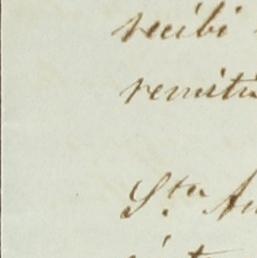 recibi
remiti
Sta An